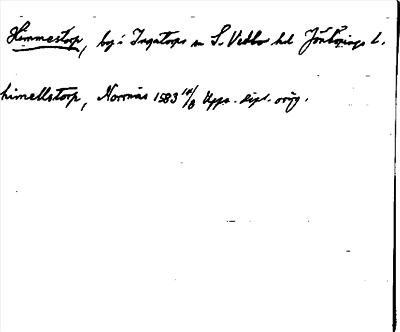 Himmestorp, by i Ingatorps sn S. Vedbo hd Jönköpings l.
himellstorp, Norrnäs 1583 10/8 Upps. dipl. orig.